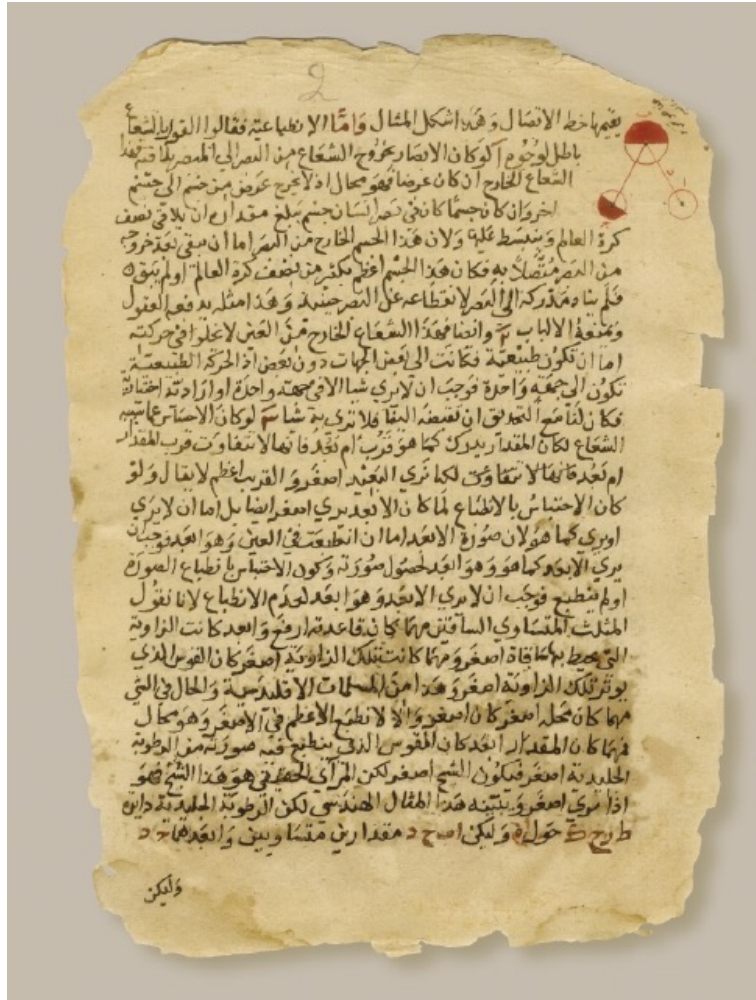 2
يقيمها خط الاتصال وهذا شكل المثال وامّا الانطباعية فقالوا القول بالشعاع
باطل لوجوه آ لو كان الابصار بخروج الشعاع من البصر الى المبصر
الشعاع الخارج ان كان عرضا فهو محال اذ لا يخرج عرض من جسم الى جسم
اخر وان كان جسما كان في بصر انسان جسم يبلغ مقداره ان يلاقي نصف
كرة العالم وينبسط عليها ولان هذا الجسم الخارج من البصر اما ان يبقى بعد خروجه
من البصر متصلا به فكان هذا الجسم اعظم بكثير من نصف كرة العالم او لم يبق
فلم يتاد مدركه الى البصر لانقطاعه عن البصر حينئذ وهذا مثله يدفعه العقول
ويمنعه الالباب وايضا فهذا الشعاع الخارج من العين لا يخلوا في حركته
اما ان تكون طبيعية فكانت الى بعض الجهات دون بعض اذ الحركة الطبيعية
تكون الى جهة واحدة فوجب ان لا يري شيا الا في جهة واحدة او ارادية اختيارية
فكان لنا مع التحديق ان نقبضه الينا فلا نري به شيا لو كان الاحساس
الشعاع لكان المقدار يدرك كما هو قرب ام بعد فانها لا تتفاوت قرب المقدار
ام بعد فانها لا تتفاوت لكنا نري البعيد اصغر و القريب اعظم لا يقال ولو
كان الاحساس بالانطباع لما كان الابعد يري اصغر ايضا بل اما ان لا يري
او يري كما هو لان صورة الابعد اما ان انطبعت في العين وهو ابعد فوجب ان
يري الابعد كما هو وهو ابعد لحصول صورته وكون الاحساس بانطباع الصورة
او لم ينطبع فوجب ان لا يري الابعد وهو ابعد لعدم الانطباع لانا نقول
المثلث المتساوي الساقين مهما كان قاعدته ارفع وابعد كانت الزاوية
التي يحيط بها ساقاه اصغر ومهما كانت تلك الزاوية اصغر كان القوس الذي
يوتر تلك الزاوية اصغر وهذا من المسلمات الاقليدسية والحال في التي
مهما كان محله اصغر كان اصغر والا لانطبع الاعظم في الاصغر وهو محال
فمهما كان المقدار ابعد كان القوس الذي ينطبع فيه صورته من الرطوبة
الجليدية اصغر فيكون الشبح اصغر لكن المرآي الحقيقي هو هذا الشبح فهو
اذا يري اصغر ويبينه هذا المثال الهندسي ليكن الرطوبة الجليدية دايرة
ط ر ح حول ه وليكن ا ب ح د مقدارين متساويين وابعدهما ح د
وليكن